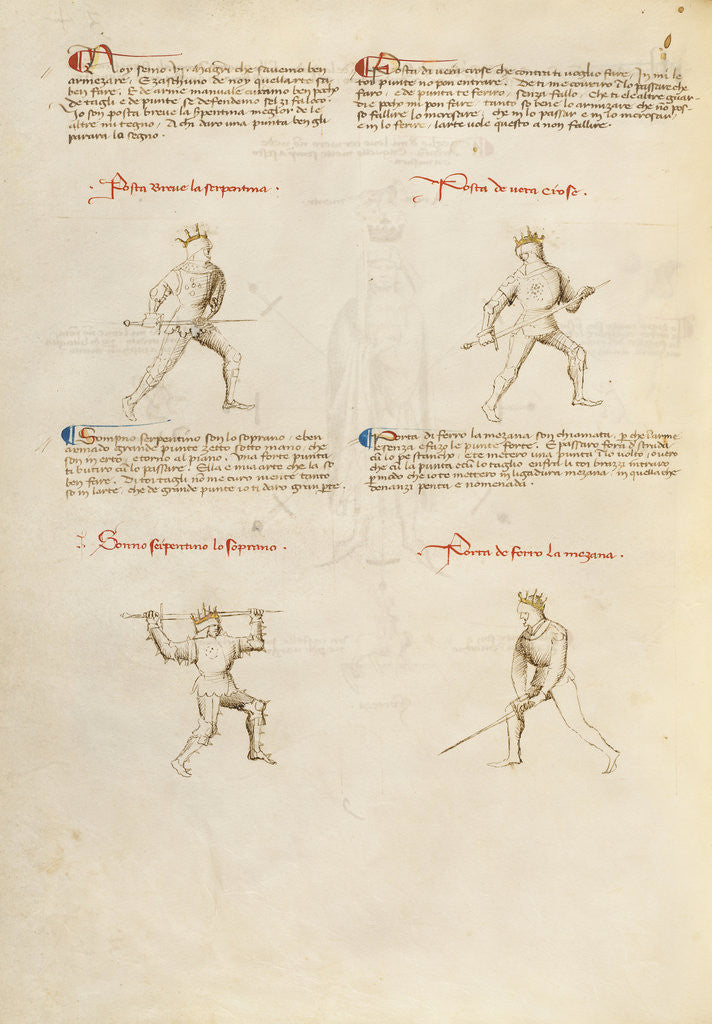 Noy semo .vi. magistri che savemo ben
armezare, E zaschuno de noy quellarte sa
ben fare. E de arme manuale curamo ben pocho
De tagli e de punte se defendemo sel zi fa loco.
Io son posta breve la serpentina meglor de le
altre mi tegno, A chi daro una punta ben gli
parara lo segno.
Posta di vera crose che contra ti voglio fare, In mi le
toy punte no pon entrare. De ti me covriro in lo passare che
faro, e de punta te feriro, senza fallo, Che ti e le altre guar
die pocho mi pon fare tanto so bene lo armizare che no pos
so fallire lo incrosare, che in lo passar e in lo incrosar,
e in lo ferire, larte vole questo a non fallire.
Posta Breve la serpentina.
Posta de vera Crose.
Sompno serpentino son lo soprano, e ben
armado grande punte zetto sotto mano, che
son in erto, e torno al piano. Una forte punta
ti butiro cu lo passare. Ella e mia arte che la so
ben fare. Di toi tagli no me curo niente tanto
so in larte, che de grande punte io ti daro gran pte.
Porta di ferro la mezana son chiamata, p che l'arme
e senza e fazo le punte forte. E passaro fora d strada
cu lo pe stancho, e te metero una punta in lo volto, o vero
che cu la punta e cu lo taglio entri li toi brazzi intraro
p modo che io te mettero in ligadura mezana, in quella che
denanzi penta e nomenada.
Sonno serpentino lo soprano.
Porta de ferro la mezana.